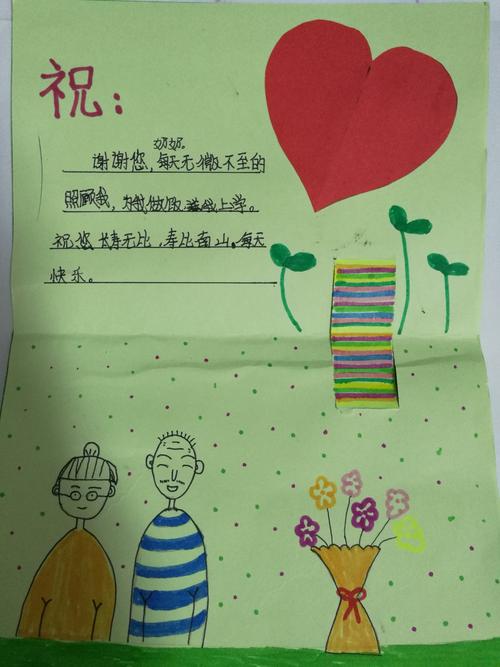 祝：
奶奶。
谢谢您，每天无微不至的
照顾我，为我做饭送我上学。
祝您长寿无比，寿比南山。每天
快乐。